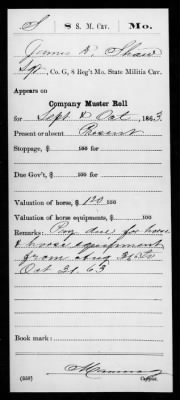 S | 8 S. M. Cav. | Mo.
James R. Shaw
Sgt, Co. G, 8 Reg't Mo. State Militia Cav.
Appears on
Company Muster Roll
for Sept & Oct, 1863.
Present or absent Present
Stoppage, $ 100 for
Due Gov't, $ 100 for
Valuation of horse, $ 120 100
Valuation of horse equipments, $ 100
Remarks: Pay due for horse
& horse equipment
from Aug 31 63 to
Oct 31. 63
Book mark:
(358)
Copyist.